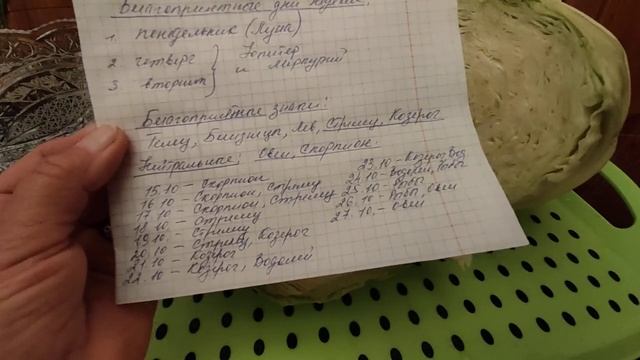 Благоприятные дни недели:
1. понедельник (Луна)
2 четверг } Юпитер
3 вторник } и Меркурий
Благоприятные знаки:
Телец, Близнецы, Лев, Стрелец, Козерог
Нейтральные: Овен, Скорпион.
15.10 – Скорпион
16.10 – Скорпион, Стрелец
17.10 – Скорпион, Стрелец
18.10 – Стрелец
19.10 – Стрелец
20.10 – Стрелец, Козерог
21.10 – Козерог
22.10 – Козерог, Водолей
23.10 – Козерог, Вод
24.10 – Водолей, Рыбы
25.10 – Рыбы
26.10 – Рыбы, Овен
27.10. – Овен